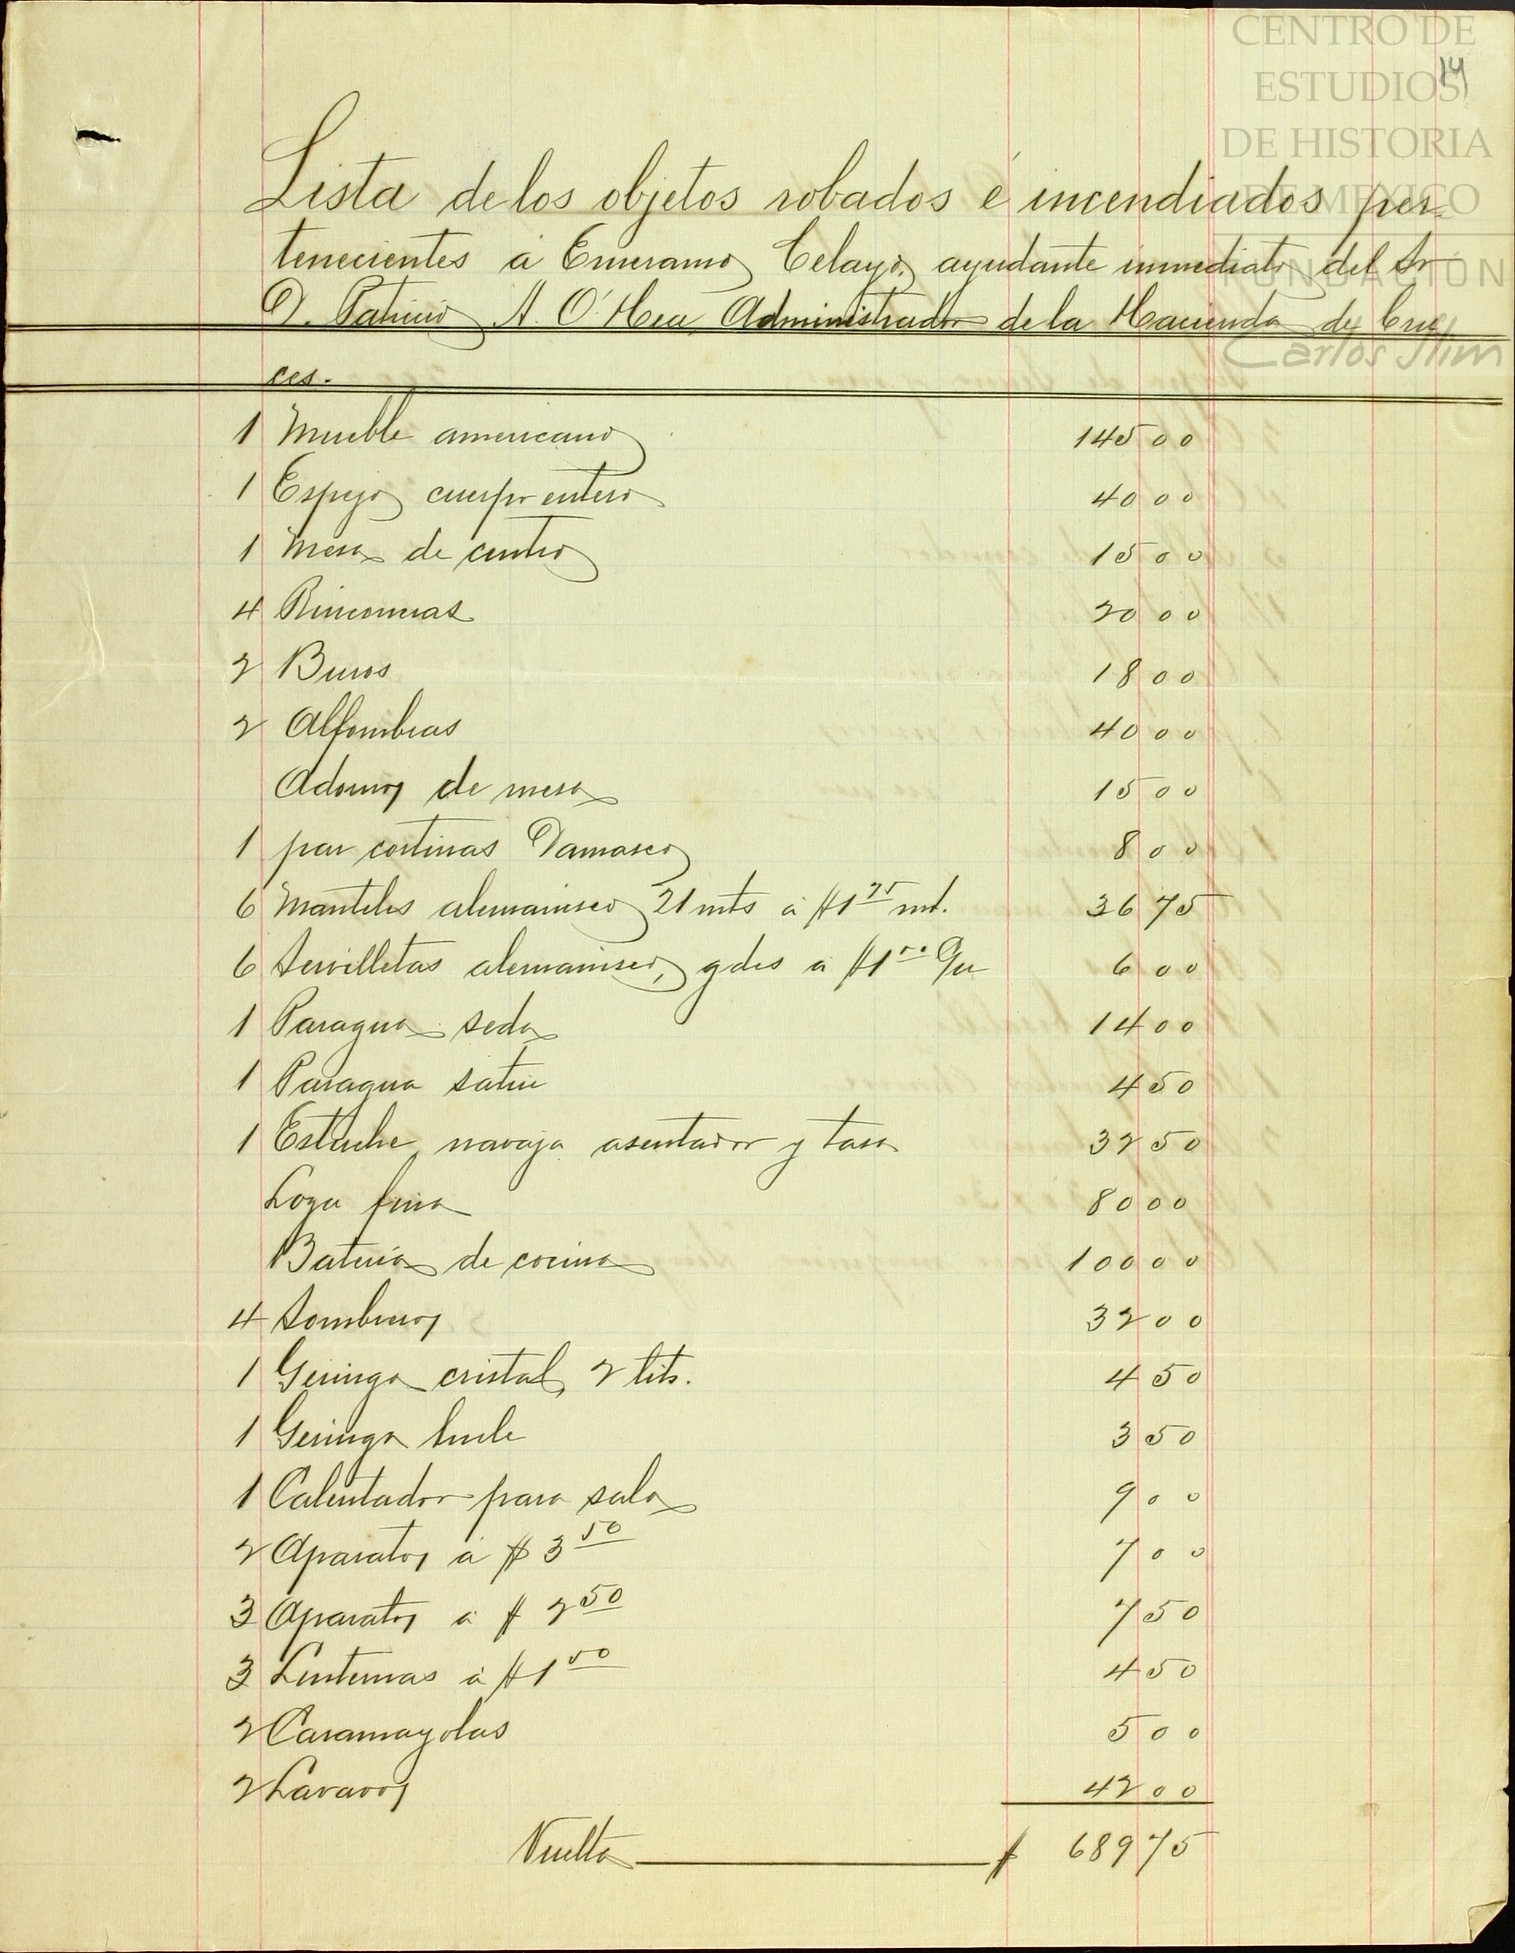 CENTRO DE
ESTUDIOS
DE HISTORIA
DE MEXICO
FUNDACIÓN
Carlos Slim
14
Lista de los objetos robados é incendiados per-
tenecientes á Emeramo Celayo, ayudante inmediato del Sr
D. Patricio A. O'Hea Administrador de la Hacienda de Cru
ces.
1 Mueble americano 145 00
1 Espejo cuerpo entero 40 00
1 Mesa de centro 15 00
4 Rinconeras 20 00
2 Buros 18 00
2 Alfombras 40 00
Adornos de mesa 15 00
1 par cortinas Damasco 8 00
6 Manteles alemanisco 21 mts á $1 75 mt. 36 75
6 Servilletas alemanisco, gdes á $1 00 36 6 00
1 Paragua seda 14 00
1 Paragua satin 4 50
1 Estuche navaja asentador y tasa 32 50
Loza fina 80 00
Bateria de cocina 100 00
4 Sombreros 32 00
1 Geringa cristal, 2 lits. 4 50
1 Geringa hule 3 50
1 Calentador para sala 9 00
2 Aparatos á $ 3 50 7 00
3 Aparatos á $ 2 50 7 50
3 Linternas á $1 50 4 50
2 Caramayolas 5 00
2 Lavavos 42 00
Vuelta $ 689 75